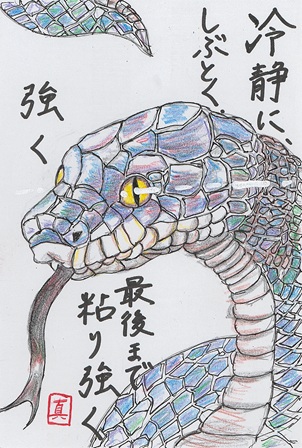 冷静に、
しぶとく、
強く
最後まで
粘り強く
真